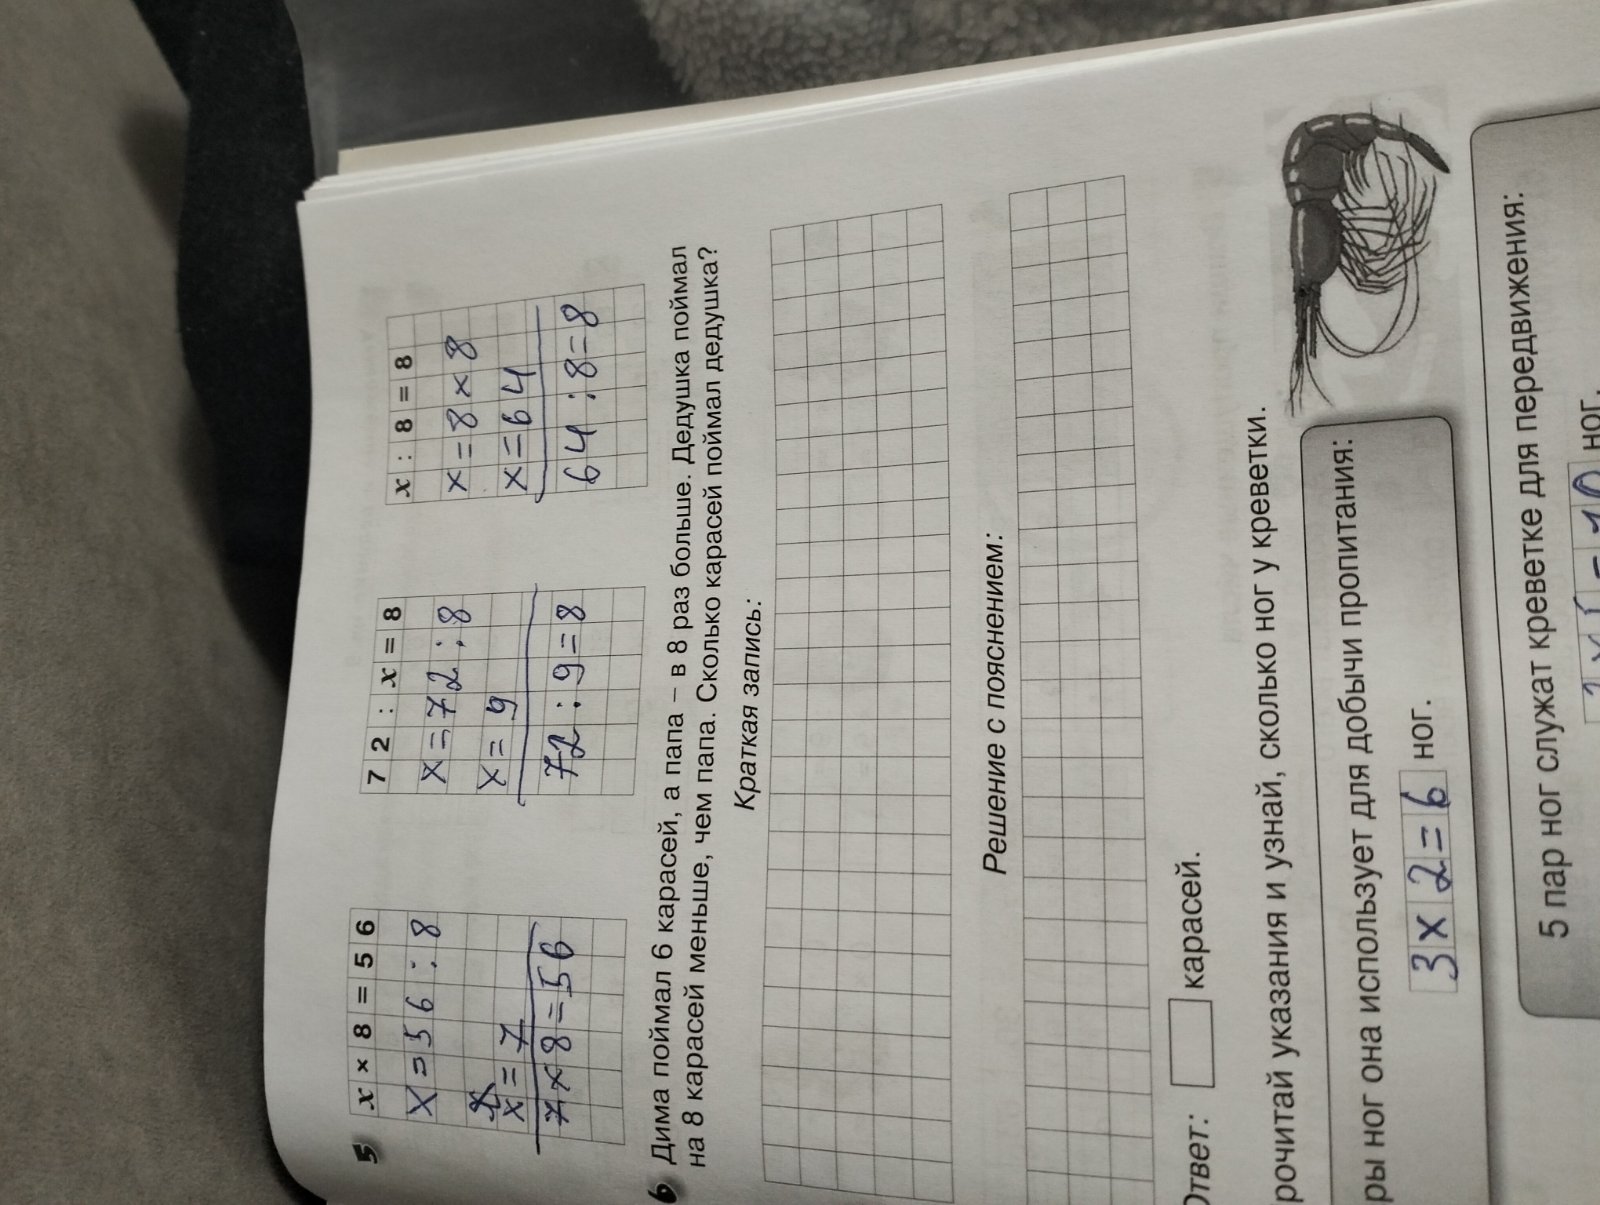 5
x × 8 = 5 6
x = 5 6 : 8
x = 7
7 × 8 = 5 6
7 2 : x = 8
x = 7 2 : 8
x = 9
7 2 : 9 = 8
x : 8 = 8
x = 8 × 8
x = 6 4
6 4 : 8 = 8
6 Дима поймал 6 карасей, а папа – в 8 раз больше. Дедушка поймал
на 8 карасей меньше, чем папа. Сколько карасей поймал дедушка?
Краткая запись:
Решение с пояснением:
Ответ: карасей.
рочитай указания и узнай, сколько ног у креветки.
ры ног она использует для добычи пропитания:
3 × 2 = 6 ног.
5 пар ног служат креветке для передвижения:
= 10 ног.